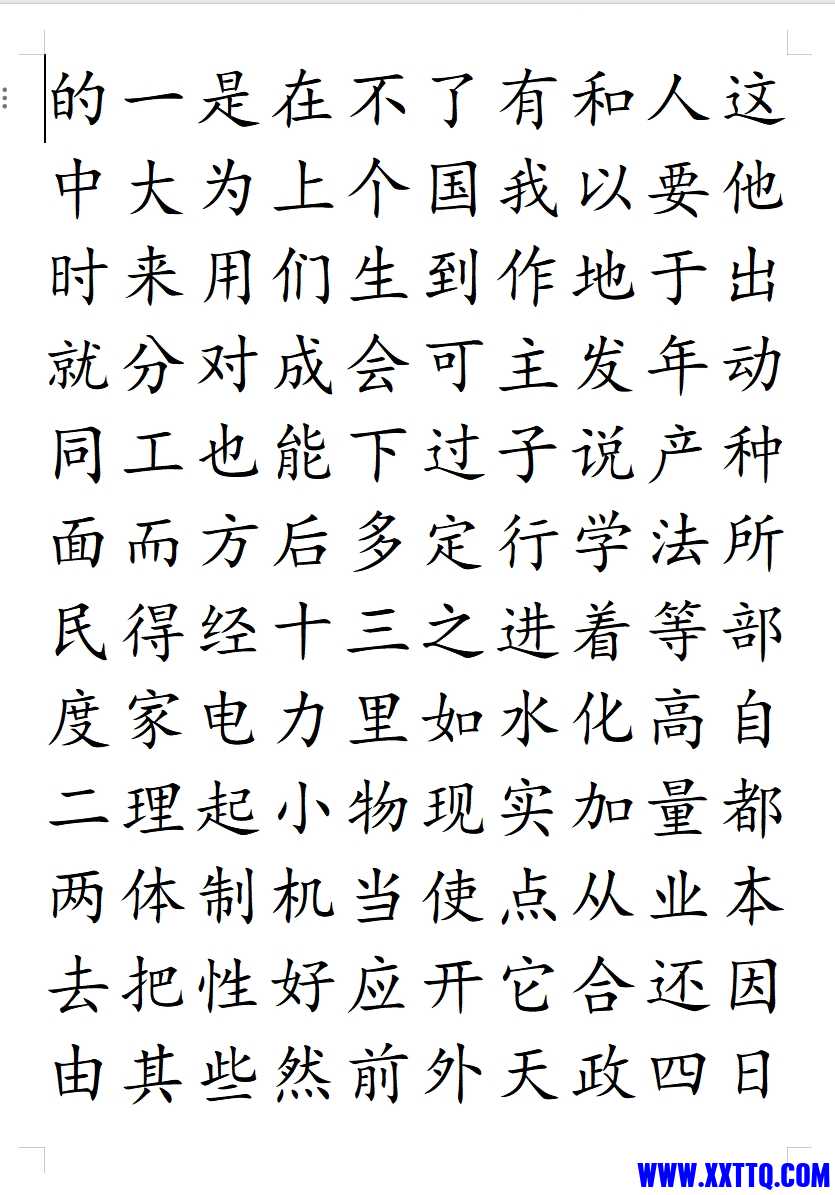 的一是在不了有和人这
中大为上个国我以要他
时来用们生到作地于出
就分对成会可主发年动
同工也能下过子说产种
面而方后多定行学法所
民得经十三之进着等部
度家电力里如水化高自
二理起小物现实加量都
两体制机当使点从业本
去把性好应开它合还因
由其些然前外天政四日
WWW.XXTTQ.COM